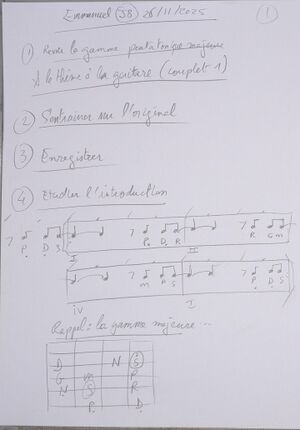 Emmanuel J8 26/11/2025 1
1 Revoir la gamme pentatonique majeure
& le thème à la guitare (couplet 1)
2 S'entrainer sur l'original
3 Enregistrer
4 Etudier l'introduction
7 P D S 7 P D R 7 R G m
I II
7 m P S 7 P D S
IV I
Rappel : la gamme majeure ...
D N S
G m P
N S R
P D